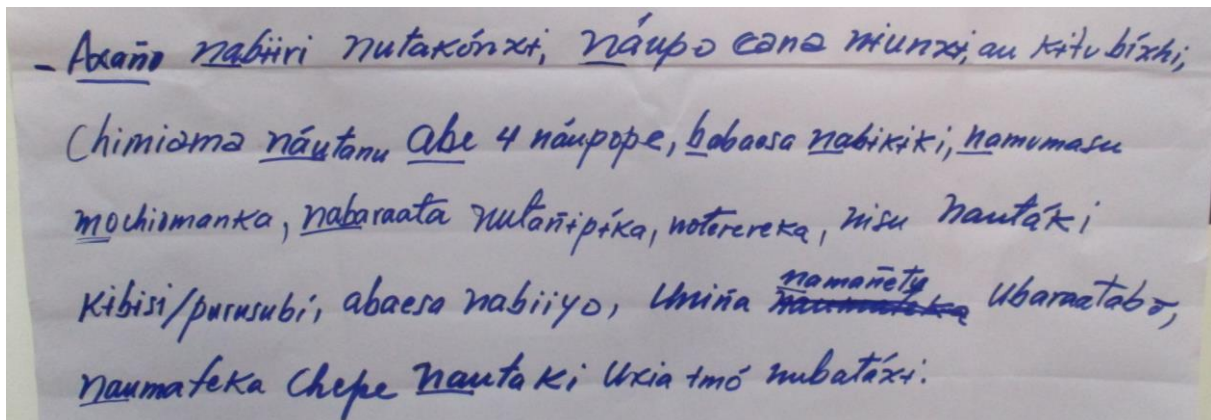 - Axaño nabɨɨri nutakónxɨ, náupo cana nɨunxɨ, au kɨtubíxhi,
Chimiama náutanu abe 4 náupope, babaesa nabɨkɨki, namumasu
mochiomanka, nabaraata nutañɨpɨ́ka, noterereka, nisu nautáki
kɨbisi/purusubí, abaesa nabiiyo, umiña namañety ubaraatabo,
naumateka Chepe nautaki uxia ɨmó nubatáxɨ.